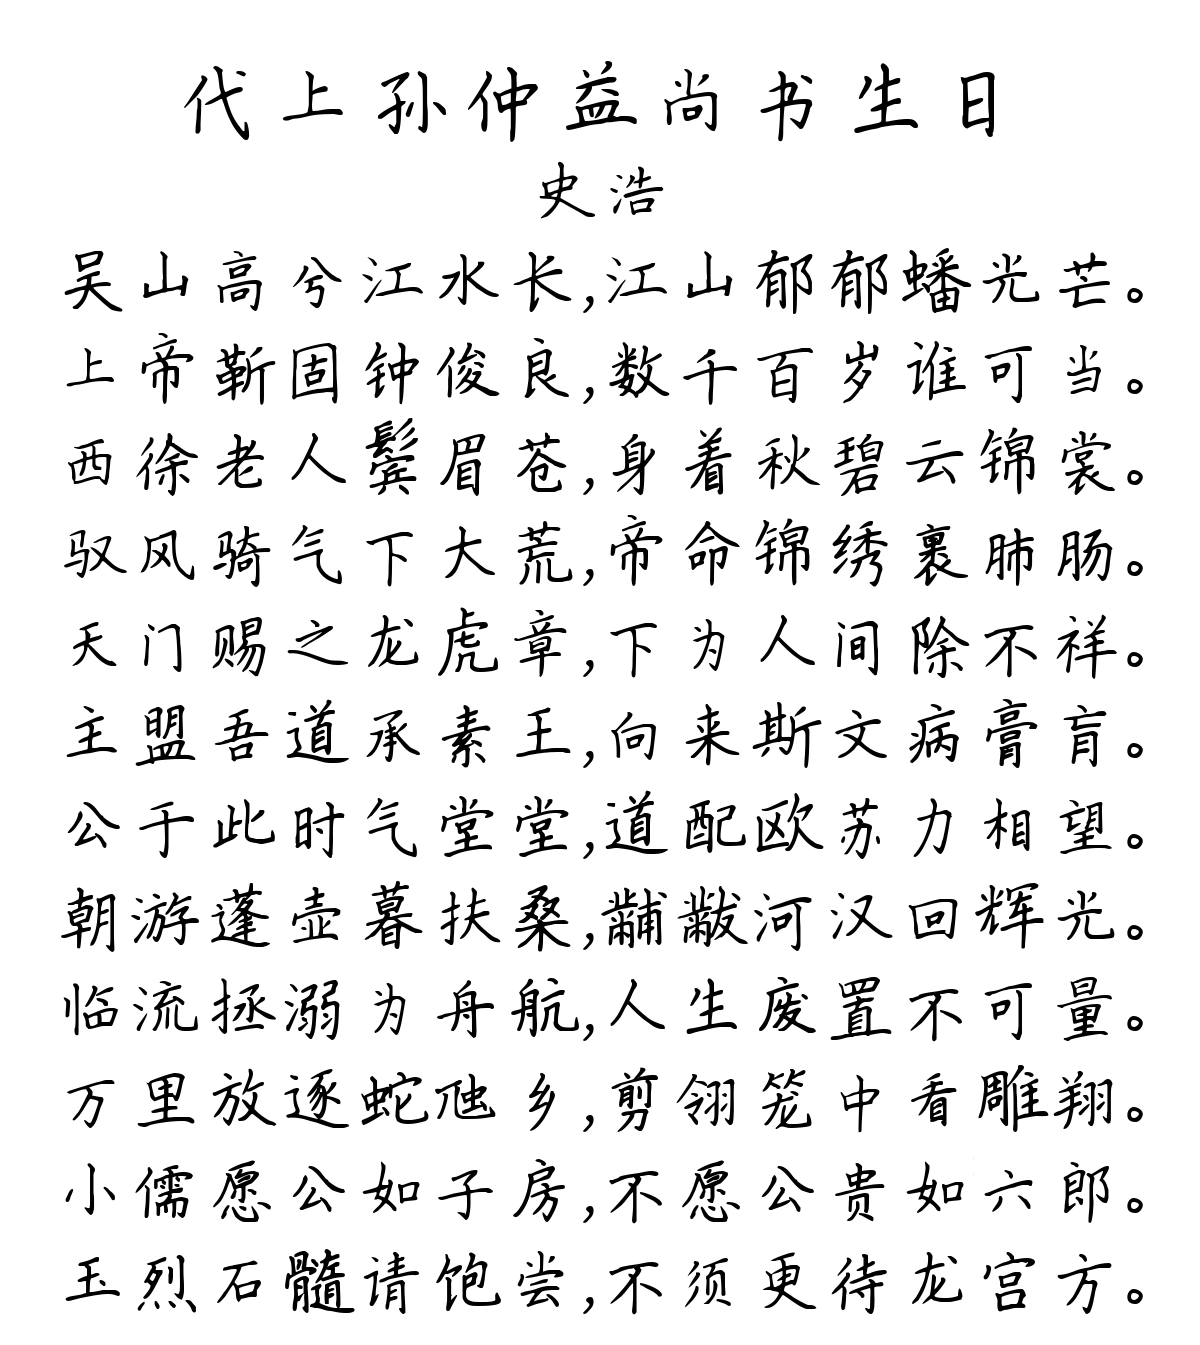 代上孙仲益尚书生日
史浩
吴山高兮江水长,江山郁郁蟠光芒。
上帝靳固钟俊良,数千百岁谁可当。
西徐老人鬓眉苍,身着秋碧云锦裳。
驭风骑气下大荒,帝命锦绣裹肺肠。
天门赐之龙虎章,下为人间除不祥。
主盟吾道承素王,向来斯文病膏肓。
公于此时气堂堂,道配欧苏力相望。
朝游蓬壶暮扶桑,黼黻河汉回辉光。
临流拯溺为舟航,人生废置不可量。
万里放逐蛇虺乡,剪翎笼中看雕翔。
小儒愿公如子房,不愿公贵如六郎。
玉烈石髓请饱尝,不须更待龙宫方。